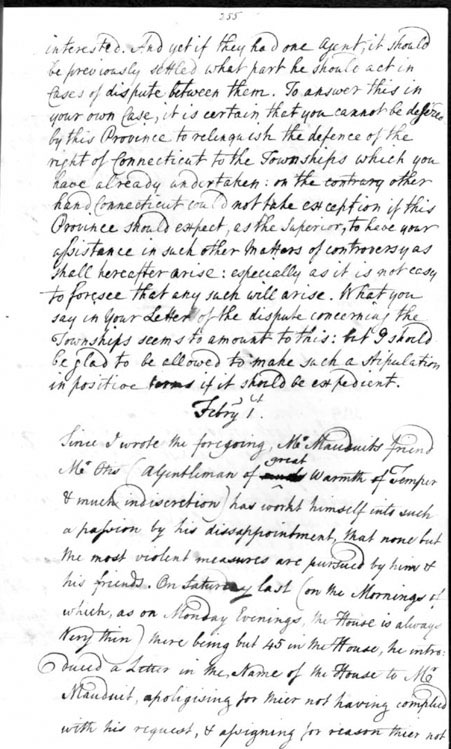 255
interested. And yet if they had one Agent, it should
be previously settled what part he should act in
Cases of dispute between them. To answer this in
your own Case, it is certain that you cannot be desired
by this Province to relinquish the defence of the
right of Connecticut to the Townships which you
have already undertaken: on the contrary other
hand Connecticut could not take exception if this
Province should expect, as the Superior, to have your
assistance in such other Matters of controversy as
shall hereafter arise: especially as it is not easy
to foresee that any such will arise. What you
say in your Letter of the dispute concerning the
Townships seems to amount to this: but I should
be glad to be allowed to make such a stipulation
in positive terms if it should be expedient.
Febry 1st.
Since I wrote the foregoing, Mr Mauduits friend
Mr Otis (A Gentleman of great Warmth of Temper
& much indiscretion) has workt himself into such
a passion by his dissappointment, that none but
the most violent measures are pursued by him &
his friends. On Saturday last (on the Mornings of
which, as on Monday Evenings, the House is always
Very thin) there being but 45 in the House, he intro-
duced a Letter in the Name of the House to Mr
Mauduit, apoligising for thier not having complied
with his request, & assigning for reason thier not